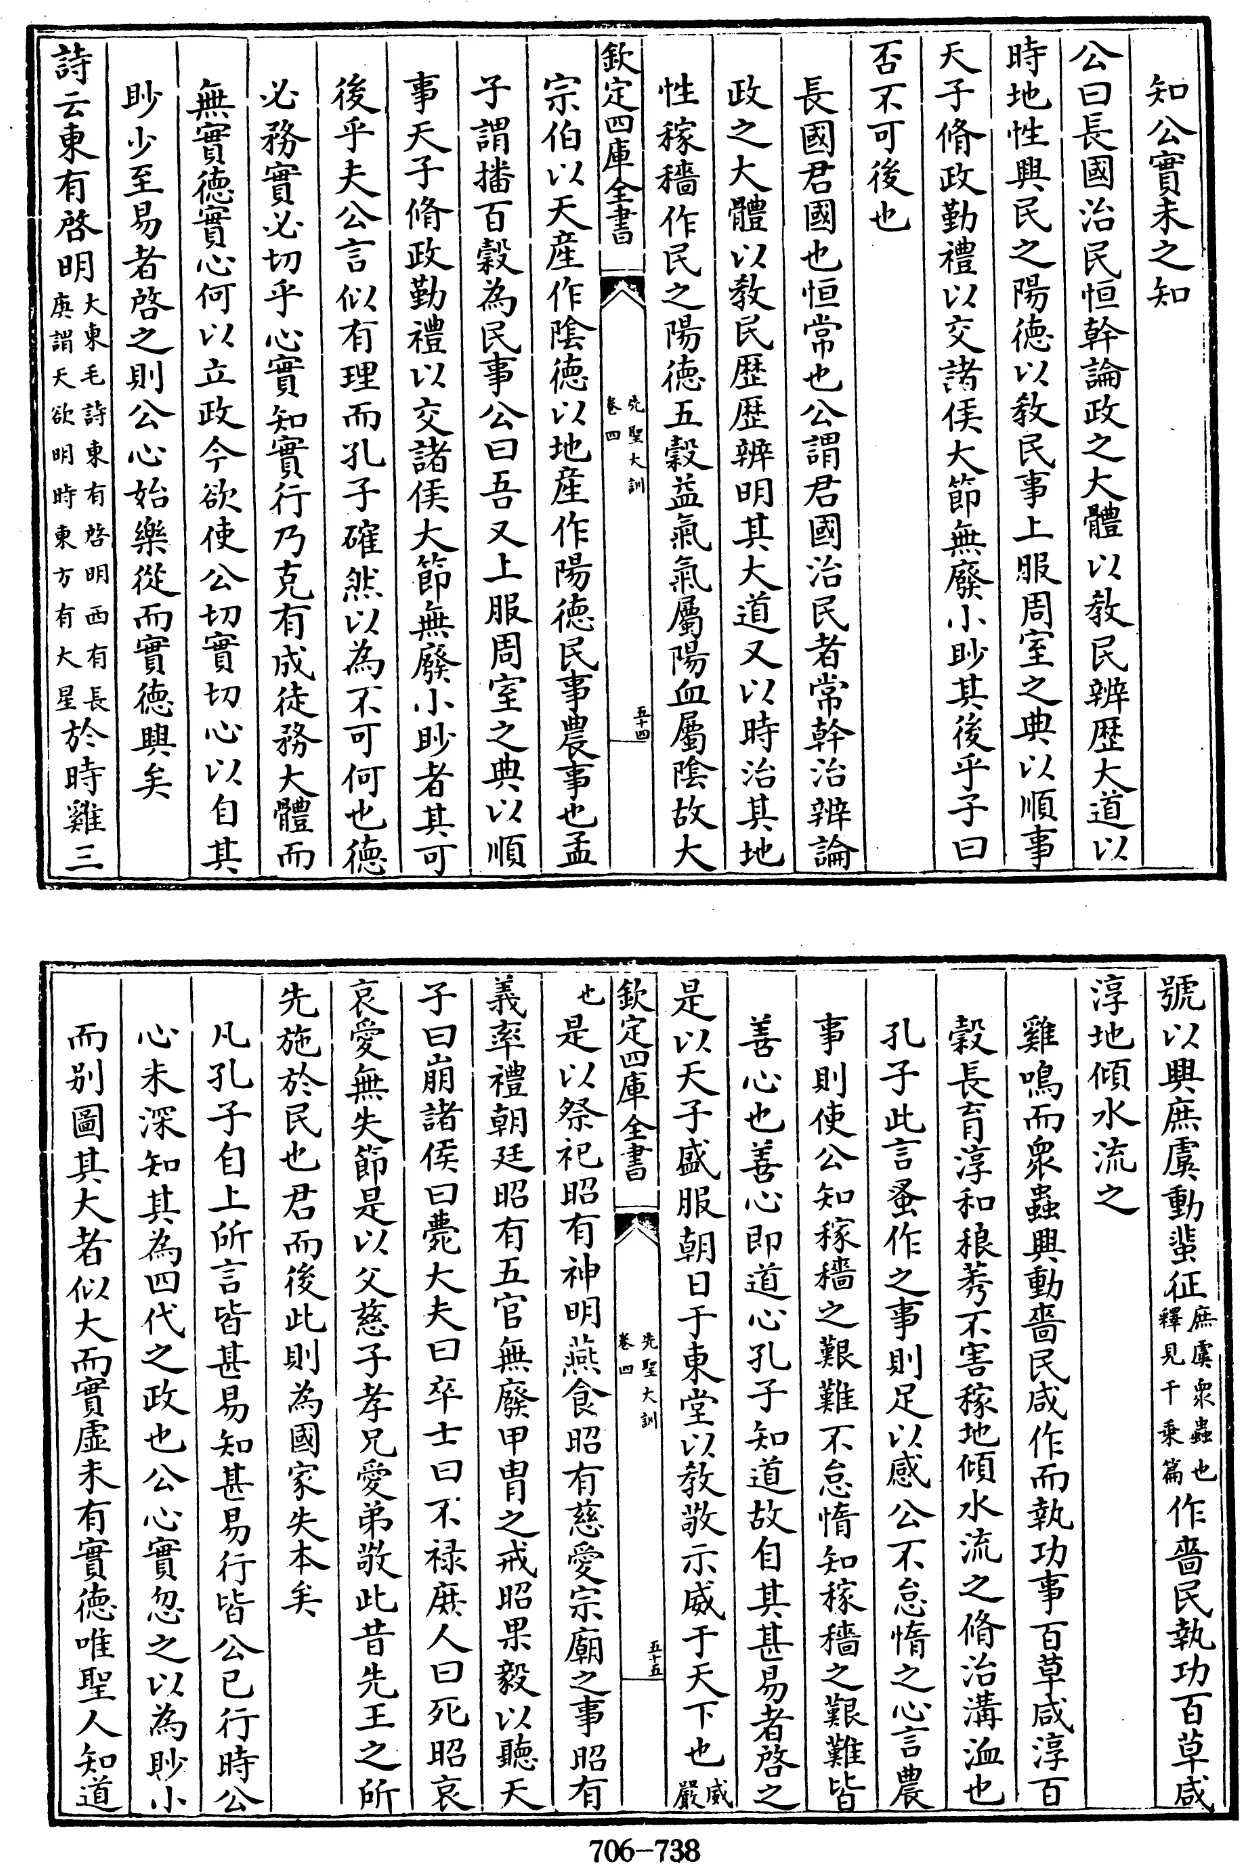 知公實未之知
公曰長國治民恒幹論政之大體以教民辨歷大道以
時地性興民之陽德以教民事上服周室之典以順事
天子脩政勤禮以交諸侯大節無廢小眇其後乎子曰
否不可後也
長國君國也恒常也公謂君國治民者常幹治辨論
政之大體以教民歷歷辨明其大道又以時治其地
性稼穡作民之陽德五穀益氣氣屬陽血屬陰故大
欽定四庫全書
先聖大訓
卷四
五十四
宗伯以天産作陰德以地産作陽德民事農事也孟
子謂播百穀為民事公曰吾又上服周室之典以順
事天子脩政勤禮以交諸侯大節無廢小眇者其可
後乎夫公言似有理而孔子確然以為不可何也德
必務實必切乎心實知實行乃克有成徒務大體而
無實德實心何以立政今欲使公切實切心以自其
眇少至易者啓之則公心始樂從而實德興矣
詩云東有啓明大東毛詩東有啓明西有長庚謂天欲明時東方有大星於時雞三
號以興庶虞動蜚征庶虞衆蟲也釋見千乗篇作嗇民執功百草咸
淳地傾水流之
雞鳴而衆蟲興動嗇民咸作而執功事百草咸淳百
穀長育淳和稂莠不害稼地傾水流之脩治溝洫也
孔子此言蚤作之事則足以感公不怠惰之心言農
事則使公知稼穡之艱難不怠惰知稼穡之艱難皆
善心也善心即道心孔子知道故自其甚易者啓之
是以天子盛服朝日于東堂以教敬示威于天下也威嚴
欽定四庫全書
先聖大訓
卷四
五十五
也是以祭祀昭有神明燕食昭有慈愛宗廟之事昭有
義率禮朝廷昭有五官無廢甲胄之戒昭果毅以聽天
子曰崩諸侯曰薨大夫曰卒士曰不禄庶人曰死昭哀
哀愛無失節是以父慈子孝兄愛弟敬此昔先王之所
先施於民也君而後此則為國家失本矣
凡孔子自上所言皆甚易知甚易行皆公已行時公
心未深知其為四代之政也公心實忽之以為眇小
而別圖其大者似大而實虛未有實德唯聖人知道
706-738